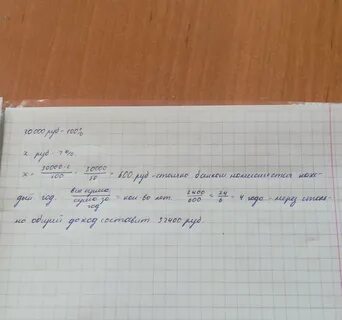 30000 руб - 100%
x руб - 2%
x = 30000·2/100 = 30000/50 = 600 руб - столько банком начисляется каж-
дый год. вся сумма/сумма за год = кол-во лет. 2400/600 = 24/6 = 4 года - через столь-
ко общий доход составит 32400 руб.